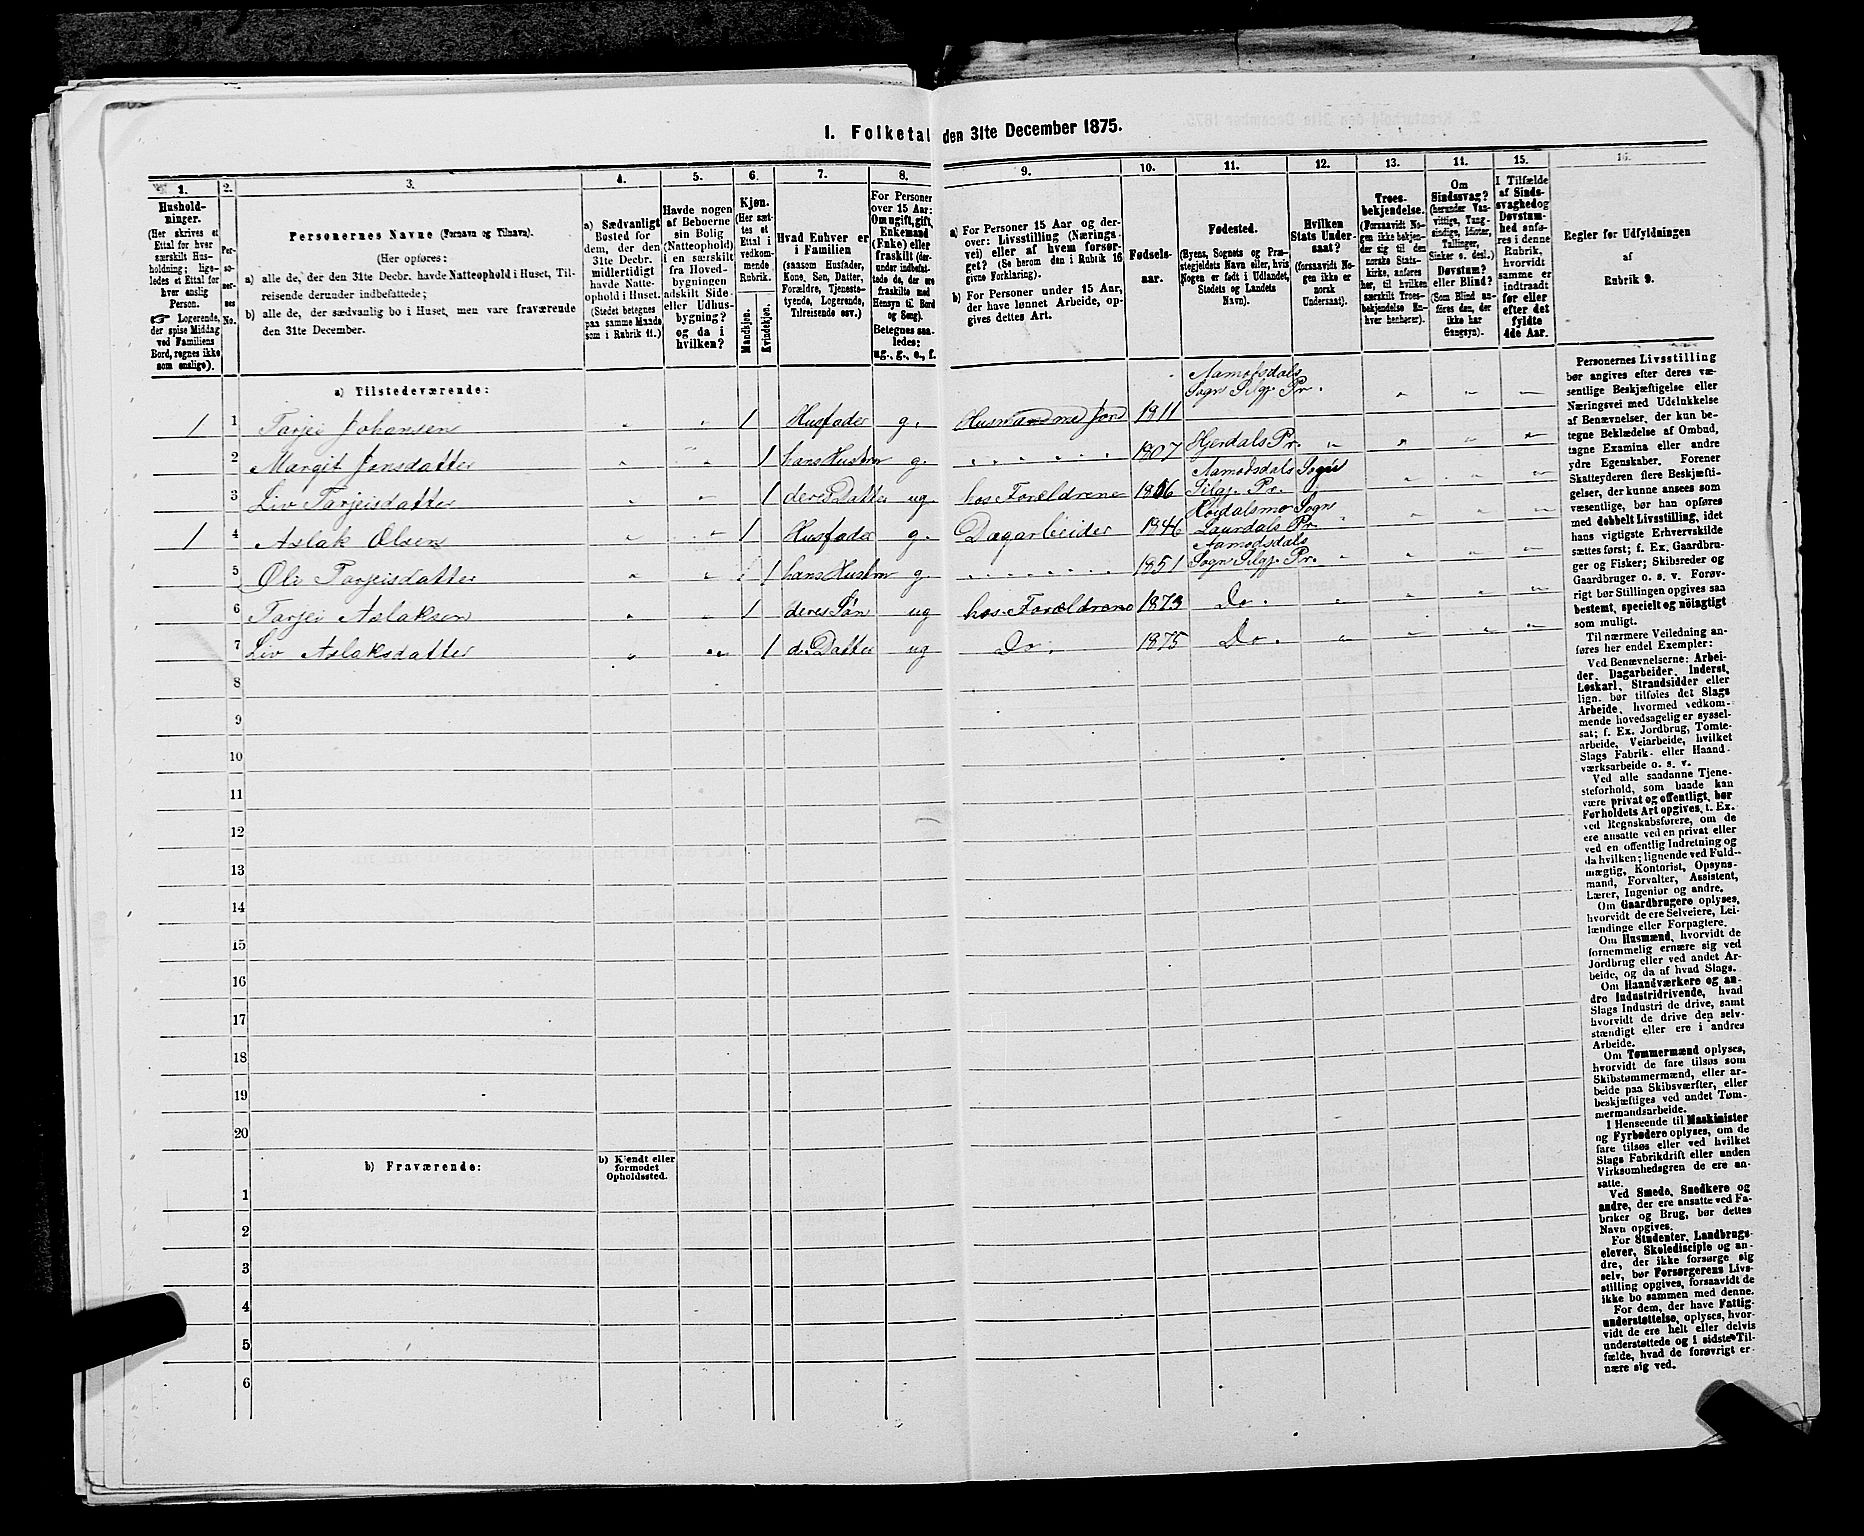 1. Folketal den 31te December 1875.
1.
2.
3.
4.
5.
6.
7.
8.
9.
10.
11.
12.
13.
14.
15.
16.
Hushold-
ninger.
(Her skrives et
Ettal for hver
særskilt Hus-
holdning; lige-
ledes et Ettal for
hver enslig
Person.
☞ Logerende,
der spise Middag
ved Familiens
Bord, regnes ikke
som enslige).
Per-
so-
ner-
nes
No.
Personernes Navne (Fornavn og Tilnavn).
(Her opføres:
a) alle de, der den 31te Decbr. havde Natteophold i Huset, Til-
reisende derunder indbefattede;
b) alle de, der sædvanlig bo i Huset, men vare fraværende
den 31te December.
a) Sædvanligt
Bosted for
dem, der den
31te Decbr.
midlertidigt
havde Natte-
ophold i Huset.
(Stedet betegnes
paa samme Maade
som i Rubrik 11.)
Havde nogen
af Beboerne
sin Bolig
(Natteophold)
i en særskilt
fra Hoved-
bygningen
adskilt Side-
eller Udhus-
bygning?
og da i
hvilken?
Kjøn.
(Her sæt-
tes et
Ettal i
vedkom-
mende
Rubrik.
Mandkjøn.
Kvindekjøn.
Hvad Enhver er
i Familien
(saasom Husfader,
Kone, Søn, Datter,
Forældre, Tjeneste-
tyende, Logerende,
Tilreisende osv.)
For Personer
over 15 Aar:
Om ugift, gift,
Enkemand
(Enke) eller
fraskilt (der-
under indbefat-
tede de, der ere
fraskilte med
Hensyn til Bord
og Seng).
Betegnes saa-
ledes:
ug., g., e., f.
a) For Personer 15 Aar og der-
over: Livsstilling (Nærings-
vei) eller af hvem forsør-
get? (Se herom den i Rubrik 16
givne Forklaring).
b) For Personer under 15 Aar,
der have lønnet Arbeide, op-
gives dettes Art.
Fødsels-
aar.
Fødested.
(Byens, Sognets og Præ-
stegjeldets Navn eller, hvis
Nogen er født i Udlandet,
Stedets og Landets
Navn).
Hvilken
Stats Under-
saat?
(forsaavidt No-
gen ikke er
norsk
Undersaat).
Troes-
bekjendelse.
(Forsaavidt No-
gen ikke bekjen-
der sig til den
norske Stats-
kirke, anføres
her, til hvilken
særskilt Troes-
bekjendelse En-
hver henhører).
Om
Sindssvag?
(herunder Van-
vittige, Tung-
sindige, Idioter,
Tullinger,
Sinker o. desl.)
Døvstum?
eller Blind?
(Som Blind an-
føres den, der
ikke har
Gangsyn).
I Tilfælde
af Sinds-
svaghed og
Døvstum-
hed anfø-
res i denne
Rubrik,
hvorvidt
samme er
indtraadt
før eller
efter det
fyldte
4de Aar.
Regler for Udfyldningen
af
Rubrik 9.
a) Tilstedeværende:
1 1 Tarjei Johansen " " 1 Husfader g. Husmand med Jord 1811 Aamotsdals Sogn Silgj. Pr. " " "
2 Margit Jonsdatter " " 1 hans Hustru g. " " " " " 1807 Hjerdals Pr. " " " "
3 Liv Tarjeisdatter " " 1 deres Datter ug. hos Forældrene Aamodsdals Sogn Silgj. Pr. " " "
1 4 Aslak Olsen " " 1 Husfader g. Dagarbeider 1846 Høidalsmo Sogn Laurdals Pr " " " "
5 Tarjeisdatter " " 1 hans Hustru g. " " " " " 1851 Aamodsdals Sogn Silgj. Pr. " " " "
6 Tarjei Aslaksen " " 1 deres Søn ug hos Forældrene 1873 Do. " " " "
7 Liv Aslaksdatter " " 1 d. Datter ug Do. 1875 Do. " " " "
8
9
10
11
12
13
14
15
16
17
18
19
20
b) Fraværende:
b) Kjendt eller
formodet
Opholdssted.
1
2
3
4
5
6
Personernes Livsstilling
bør angives efter deres væ-
sentlige Beskjæftigelse eller
Næringsvei med Udelukkelse
af Benævnelser, der kun be-
tegne Beklædelse af Ombud,
tagne Examina eller andre
ydre Egenskaber. Forener
Skatteyderen flere Beskjæfti-
gelser, der kunne ansees som
væsentlige, bør han opføres
med dobbelt Livsstilling, idet
hans vigtigste Erhvervskilde
sættes først; f. Ex. Gaardbru-
ger og Fisker; Skibsreder og
Gaardbruger o. s. v. Forøv-
rigt bør Stillingen opgives saa
bestemt, specielt og nöiagtigt
som muligt.
Til nærmere Veiledning an-
føres her endel Exempler:
Ved Benævnelserne: Arbei-
der, Dagarbeider, Inderst,
Løskarl, Strandsidder eller
lign. bør tilføies det Slags
Arbeide, hvormed vedkom-
mende hovedsagelig er syssel-
sat; f. Ex. Jordbrug, Tomte-
arbeide, Veiarbeide, hvilket
Slags Fabrik- eller Haand-
værksarbeide o. s. v.
Ved alle saadanne Tjene-
steforhold, som baade kan
være privat og offentligt, bør
Forholdets Art opgives, t. Ex.
ved Regnskabsførere, om de
ere ansatte ved en privat eller
ved en offentlig Indretning og
da hvilken; lignende ved Fuld-
mægtig, Kontorist, Opsyns-
mand, Forvalter, Assistent,
Lærer, Ingeniør og andre.
Om Gaardbrugere oplyses,
hvorvidt de ere Selveiere, Lei-
lændinge eller Forpagtere.
Om Husmænd, hvorvidt de
fornemmelig ernære sig ved
Jordbrug eller ved andet Ar-
beide, og da af hvad Slags.
Om Haandværkere og an-
dre Industridrivende, hvad
Slags Industri de drive, samt
hvorvidt de drive den selv-
stændigt eller ere i andres
Arbeide.
Om Tømmermænd oplyses,
hvorvidt de fare tilsøs som
Skibstømmermænd, eller ar-
beide paa Skibsværfter, eller
beskjæftiges ved andet Tøm-
mermandsarbeide.
I Henseende til Maskinister
og Fyrbødere oplyses, om de
fare tilsøs eller ved hvilket
Slags Fabrikdrift eller anden
Virksomhedsgren de ere an-
satte.
Ved Smede, Snedkere og
andre, der ere ansatte ved Fa-
briker og Brug, bør dettes
Navn opgives.
For Studenter, Landbrugs-
elever, Skoledisciple og an-
dre, der ikke forsørge sig
selv, bør Forsørgerens Livs-
stilling opgives, forsaavidt de
ikke bo sammen med denne.
For dem, der have Fattig-
understøttelse, oplyses, hvor-
vidt de ere helt eller delvis
understøttede og i sidste Til-
fælde, hvad de forøvrigt er-
nære sig ved.